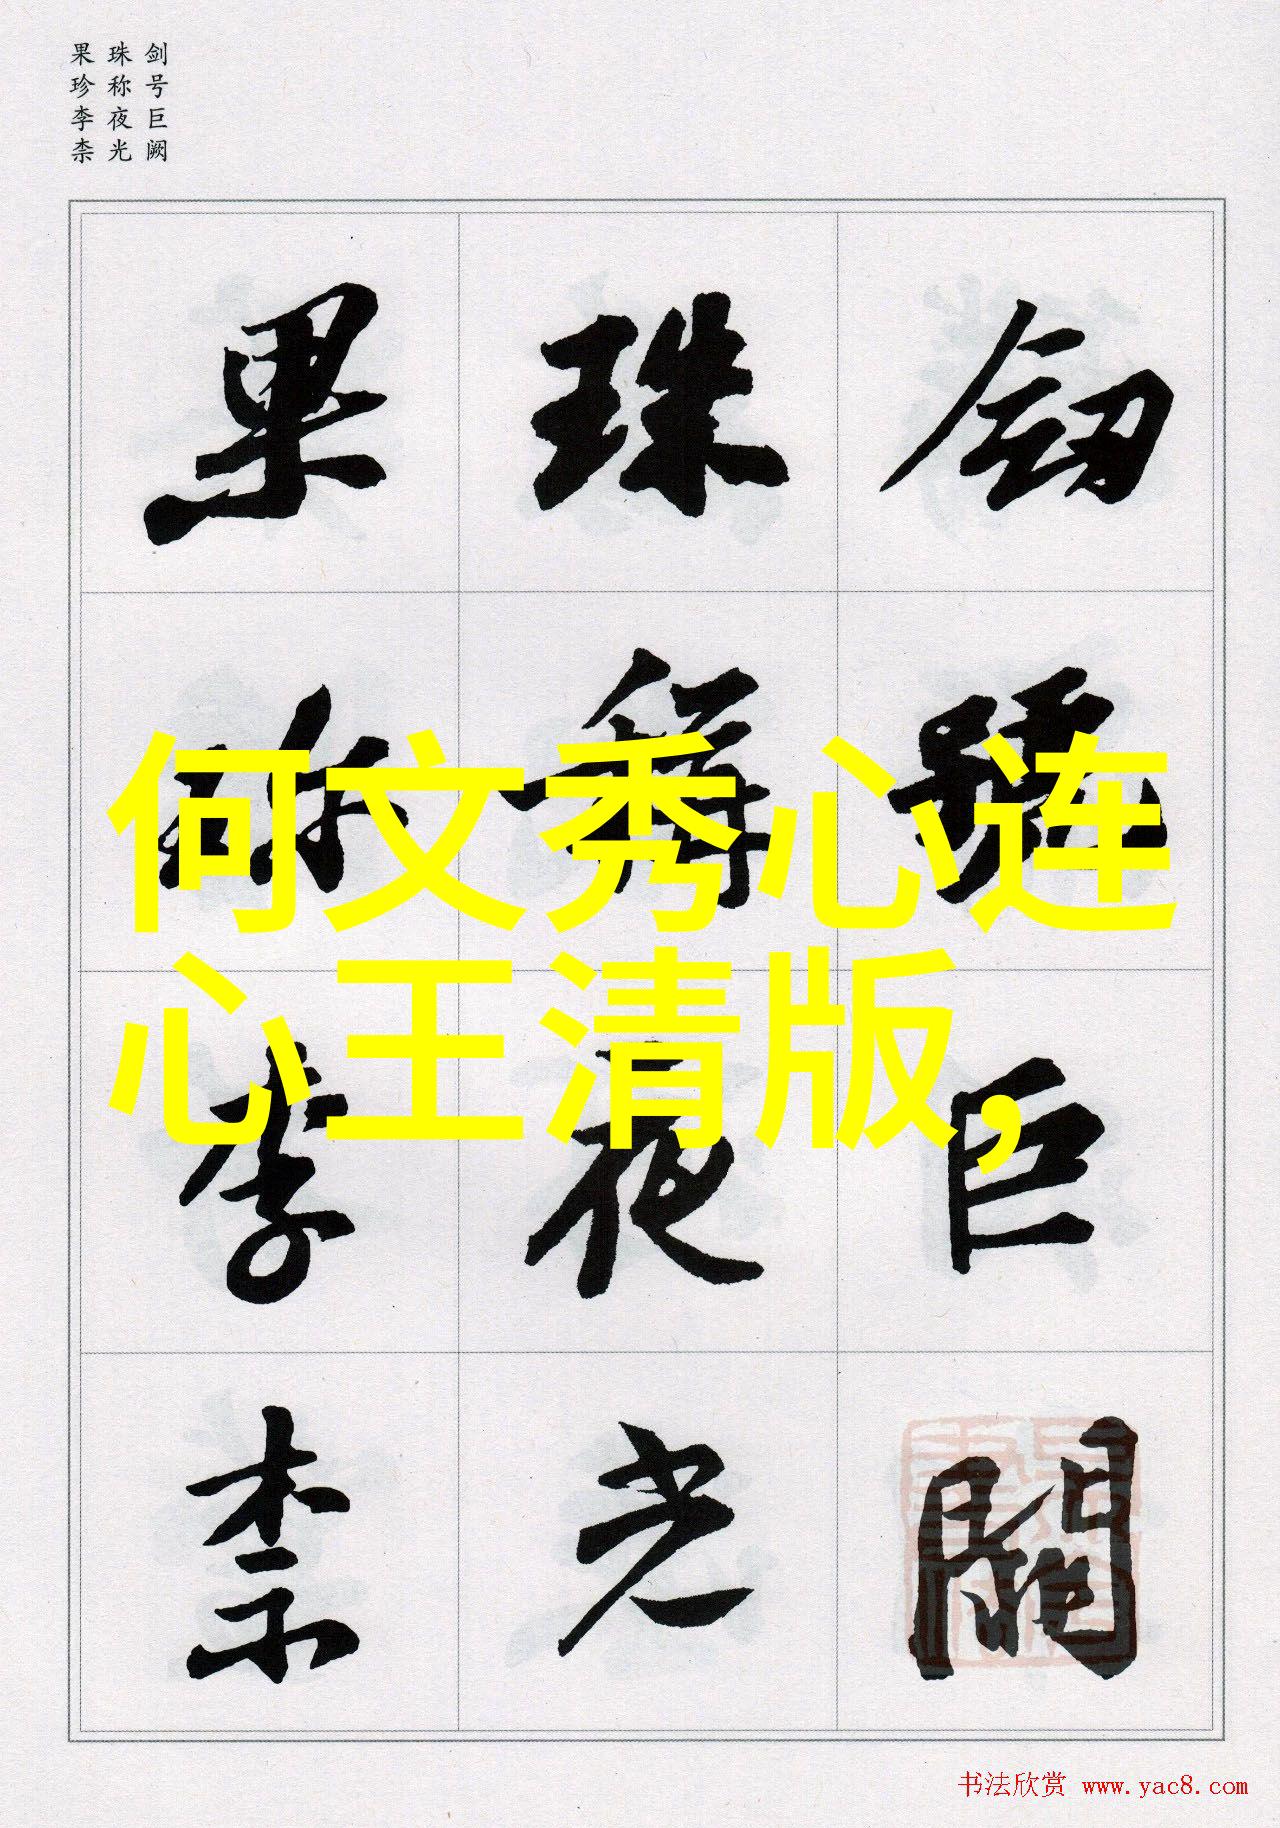 剑号巨阙
珠称夜光
果珍李柰
劍號巨闕
珠稱夜光
果珍李柰
何文秀心连
心王清版，
书法欣赏 www.yac8.com